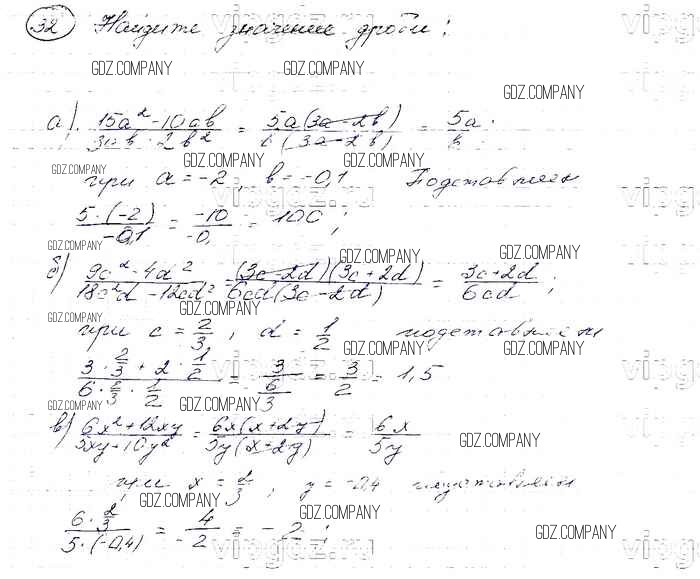 32 Найдите значение дроби:
GDZ.COMPANY GDZ.COMPANY GDZ.COMPANY
а). (15a² - 10ab)/(3ab - 2b²) = 5a(3a-2b)/(b(3a-2b)) = 5a/b
GDZ.COMPANY GDZ.COMPANY GDZ.COMPANY
при a = -2, b = -0,1 Подставляем
(5·(-2))/(-0,1) = -10/-0, = 100;
GDZ.COMPANY GDZ.COMPANY GDZ.COMPANY
б) (9c² - 4d²)/(18c²d - 12cd²) = (3c-2d)(3c+2d)/(6cd(3c-2d)) = (3c+2d)/(6cd);
GDZ.COMPANY GDZ.COMPANY
при c = 2/3, d = 1/2 подставляем
GDZ.COMPANY GDZ.COMPANY GDZ.COMPANY
(3·2/3 + 2·1/2)/(6·2/3·1/2) = 3/(6/3) = 3/2 = 1,5
GDZ.COMPANY GDZ.COMPANY
в) (6x² + 12xy)/(5xy + 10y²) = 6x(x+2y)/(5y(x+2y)) = 6x/5y
GDZ.COMPANY GDZ.COMPANY
при x = 2/3, y = -0,4 подставляем
GDZ.COMPANY GDZ.COMPANY
(6·2/3)/(5·(-0,4)) = 4/-2 = -2;
GDZ.COMPANY
vipgaz.ru